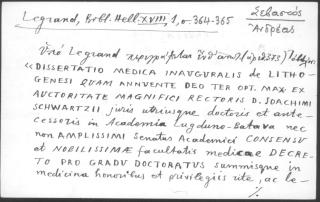 Legrand, Bibl. Hell. XVIII, 1, σ. 364-365
Σεβαστὸς
Ἀνδρέας
Ὑπὸ Legrand περιγράφεται
« DISSERTATIO MEDICA INAUGURALIS de LITHO-
GENESI QUAM ANNVENTE DEO TER OPT. MAX. EX
AUCTORITATE MAGNIFICI RECTORIS D. JOACHIMI
SCHWARTZII juris utriusque doctoris et ante-
cessoris in Academia Lugduno-Batava nec
non AMPLISSIMI Senatus Academici CONSENSU
et NOBILISSIMÆ facultatis medicæ DECRE-
TO PRO GRADU DOCTORATUS summisque in
medicina honoribus et privilegiis rite, ac le-
·/.